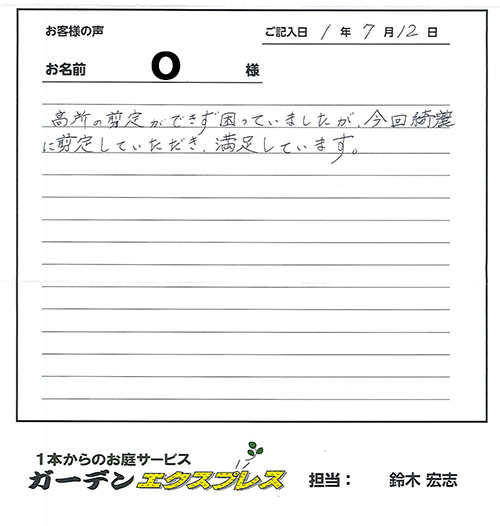 お客様の声
ご記入日 1 年 7 月 12 日
お名前 O 様
高所の剪定ができず困っていましたが、今回綺麗
に剪定していただき、満足しています。
1本からのお庭サービス
ガーデンエクスプレス 担当： 鈴木 宏志